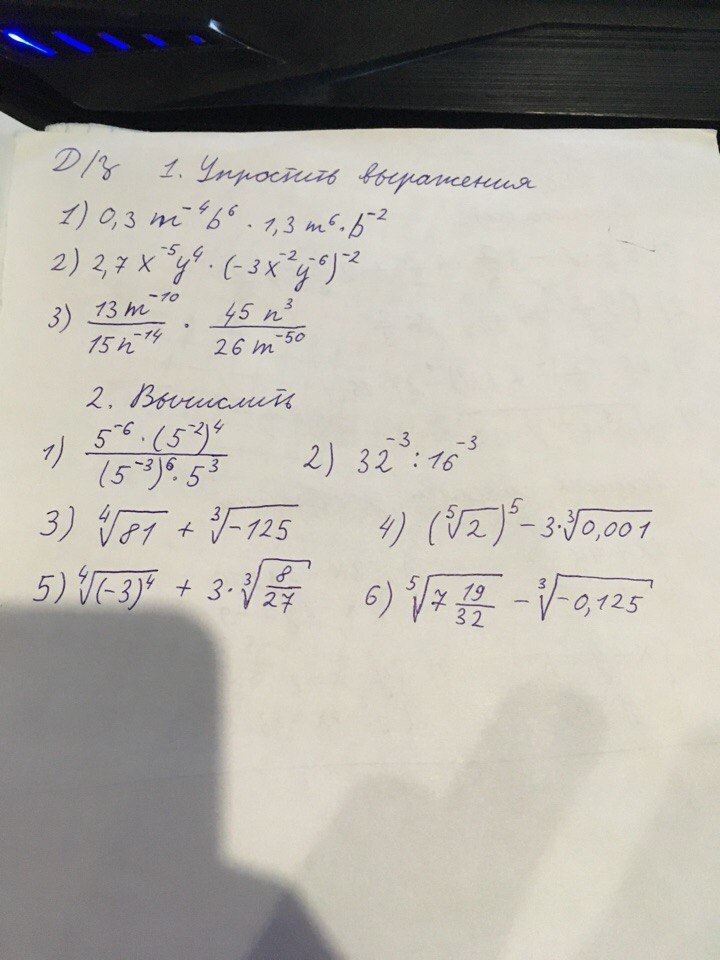 Д/з 1. Упростить выражения
1) 0,3 m⁻⁴b⁶ · 1,3 m⁶ · b⁻²
2) 2,7 x⁻⁵y⁴ · (-3x⁻²y⁻⁶)⁻²
3) 13m⁻¹⁰/15n⁻¹⁴ · 45 n³/26 m⁻⁵⁰
2. Вычислить
1) 5⁻⁶ · (5⁻²)⁴/(5⁻³)⁶ · 5³ 2) 32⁻³ : 16⁻³
3) ⁴√81 + ³√-125 4) (⁵√2)⁵ - 3·³√0,001
5) ⁴√(-3)⁴ + 3·³√8/27 6) ⁵√7 19/32 - ³√-0,125